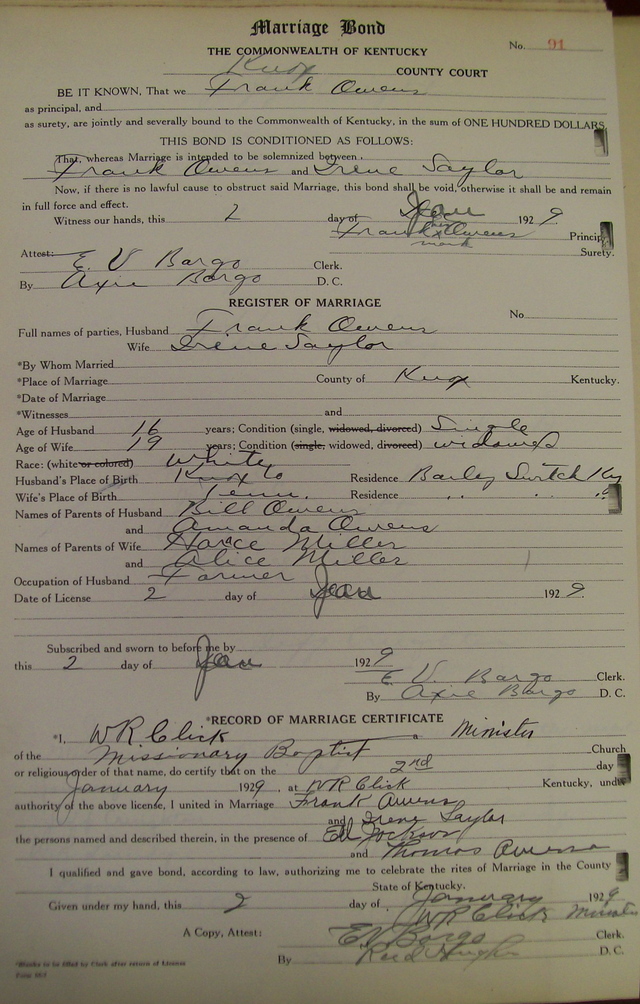 Marriage Bond
THE COMMONWEALTH OF KENTUCKY
No. 91
Knox COUNTY COURT
BE IT KNOWN, That we Frank Owens
as principal, and
as surety, are jointly and severally bound to the Commonwealth of Kentucky, in the sum of ONE HUNDRED DOLLARS.
THIS BOND IS CONDITIONED AS FOLLOWS:
That, whereas Marriage is intended to be solemnized between
Frank Owens and Irene Saylor
Now, if there is no lawful cause to obstruct said Marriage, this bond shall be void, otherwise it shall be and remain
in full force and effect.
Witness our hands, this 2 day of Jan 1929
Frank x Owens Principal
mark
Surety.
Attest: E. V Bargo Clerk.
By Axie Bargo D. C.
REGISTER OF MARRIAGE
No
Full names of parties, Husband Frank Owens
Wife Irene Saylor
*By Whom Married
*Place of Marriage County of Knox Kentucky.
*Date of Marriage
*Witnesses and
Age of Husband 16 years; Condition (single, widowed, divorced) Single
Age of Wife 19 years; Condition (single, widowed, divorced) widowed
Race: (white or colored) White
Husband's Place of Birth Knox Co Residence Barley Switch Ky
Wife's Place of Birth Tenn. Residence " " "
Names of Parents of Husband Bill Owens
and Amanda Owens
Names of Parents of Wife Miller
and Alice Miller
Occupation of Husband Farmer
Date of License 2 day of Jan 1929
Subscribed and sworn to before me by
this 2 day of Jan 1929
E. V. Bargo Clerk.
By Axie Bargo D. C.
*RECORD OF MARRIAGE CERTIFICATE
*I, WR Click a Minister
of the Missionary Baptist Church
or religious order of that name, do certify that on the 2nd day
January 1929, at WR Click Kentucky, under
authority of the above license, I united in Marriage Frank Owens
and Irene Saylor
the persons named and described therein, in the presence of Ed
and Thomas Owens
I qualified and gave bond, according to law, authorizing me to celebrate the rites of Marriage in the County
State of Kentucky.
Given under my hand, this 2 day of January 1929
WR Click Minister
A Copy, Attest: E V Bargo Clerk.
By D. C.
*Blanks to be filled by Clerk after return of License